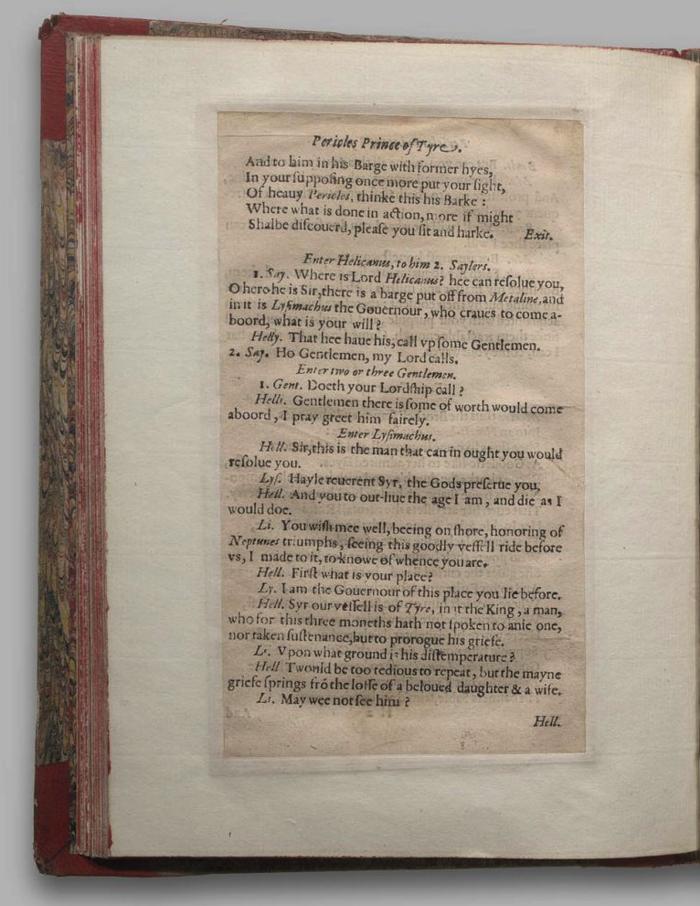 Pericles Prince of Tyre.
And to him in his Barge with former hyes,
In your ſuppoſing once more put your ſight,
Of heauy Pericles, thinke this his Barke :
Where what is done in action, more if might
Shalbe diſcouerd, pleaſe you ſit and harke. Exit.
Enter Helicanus, to him 2. Saylers.
1. Say. Where is Lord Helicanus? hee can reſolue you,
O here he is Sir, there is a barge put off from Metaline, and
in it is Lyſimachus the Gouernour, who craues to come a-
boord, what is your will ?
Helly. That hee haue his, call vp ſome Gentlemen.
2. Say. Ho Gentlemen, my Lord calls.
Enter two or three Gentlemen.
1. Gent. Doeth your Lordſhip call ?
Helli. Gentlemen there is ſome of worth would come
aboord, I pray greet him fairely.
Enter Lyſimachus.
Hell. Sir, this is the man that can in ought you would
reſolue you.
Lyſ. Hayle reuerent Syr, the Gods preſerue you,
Hell. And you to out-liue the age I am, and die as I
would doe.
Li. You wiſh mee well, beeing on ſhore, honoring of
Neptunes triumphs, ſeeing this goodly veſſell ride before
vs, I made to it, to knowe of whence you are.
Hell. Firſt what is your place?
Ly. I am the Gouernour of this place you lie before.
Hell. Syr our veſſell is of Tyre, in it the King, a man,
who for this three moneths hath not ſpoken to anie one,
nor taken ſuſtenance, but to prorogue his griefe.
Li. Vpon what ground is his diſtemperature ?
Hell Twould be too tedious to repeat, but the mayne
griefe ſprings frō the loſſe of a beloued daughter & a wife.
Li. May wee not ſee him ?
Hell.